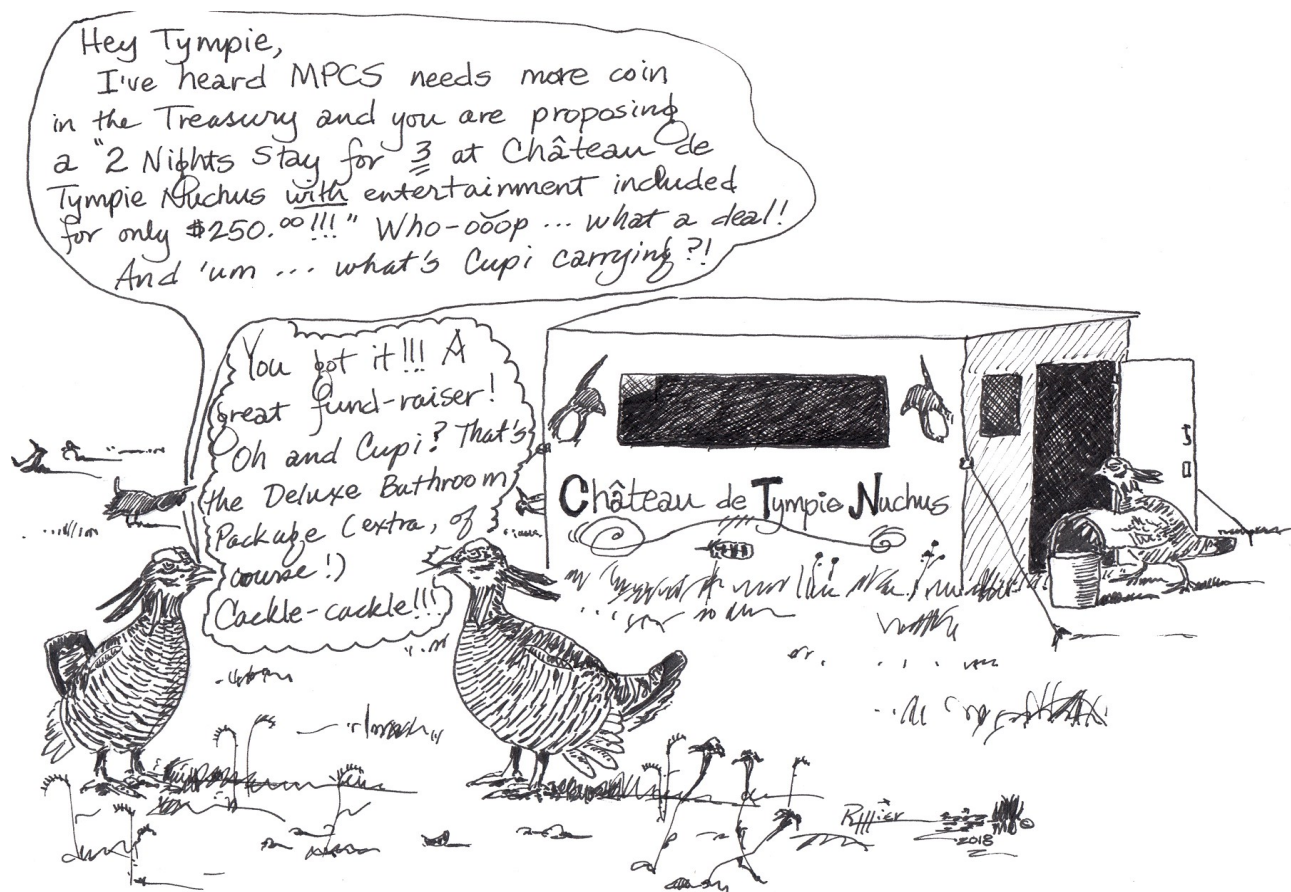 Hey Tympie,
I've heard MPCS needs more coin
in the Treasury and you are proposing
a "2 Nights Stay for 3 at Château de
Tympie Nuchus with entertainment included
for only $250.00!!!" Who-ōōōp ... what a deal!
And 'um ... what's Cupi carrying?!
You got it!!! A
great fund-raiser!
Oh and Cupi? That's
the Deluxe Bathroom
Package (extra, of
course!)
Cackle-cackle!!!
Château de Tympie Nuchus
2018